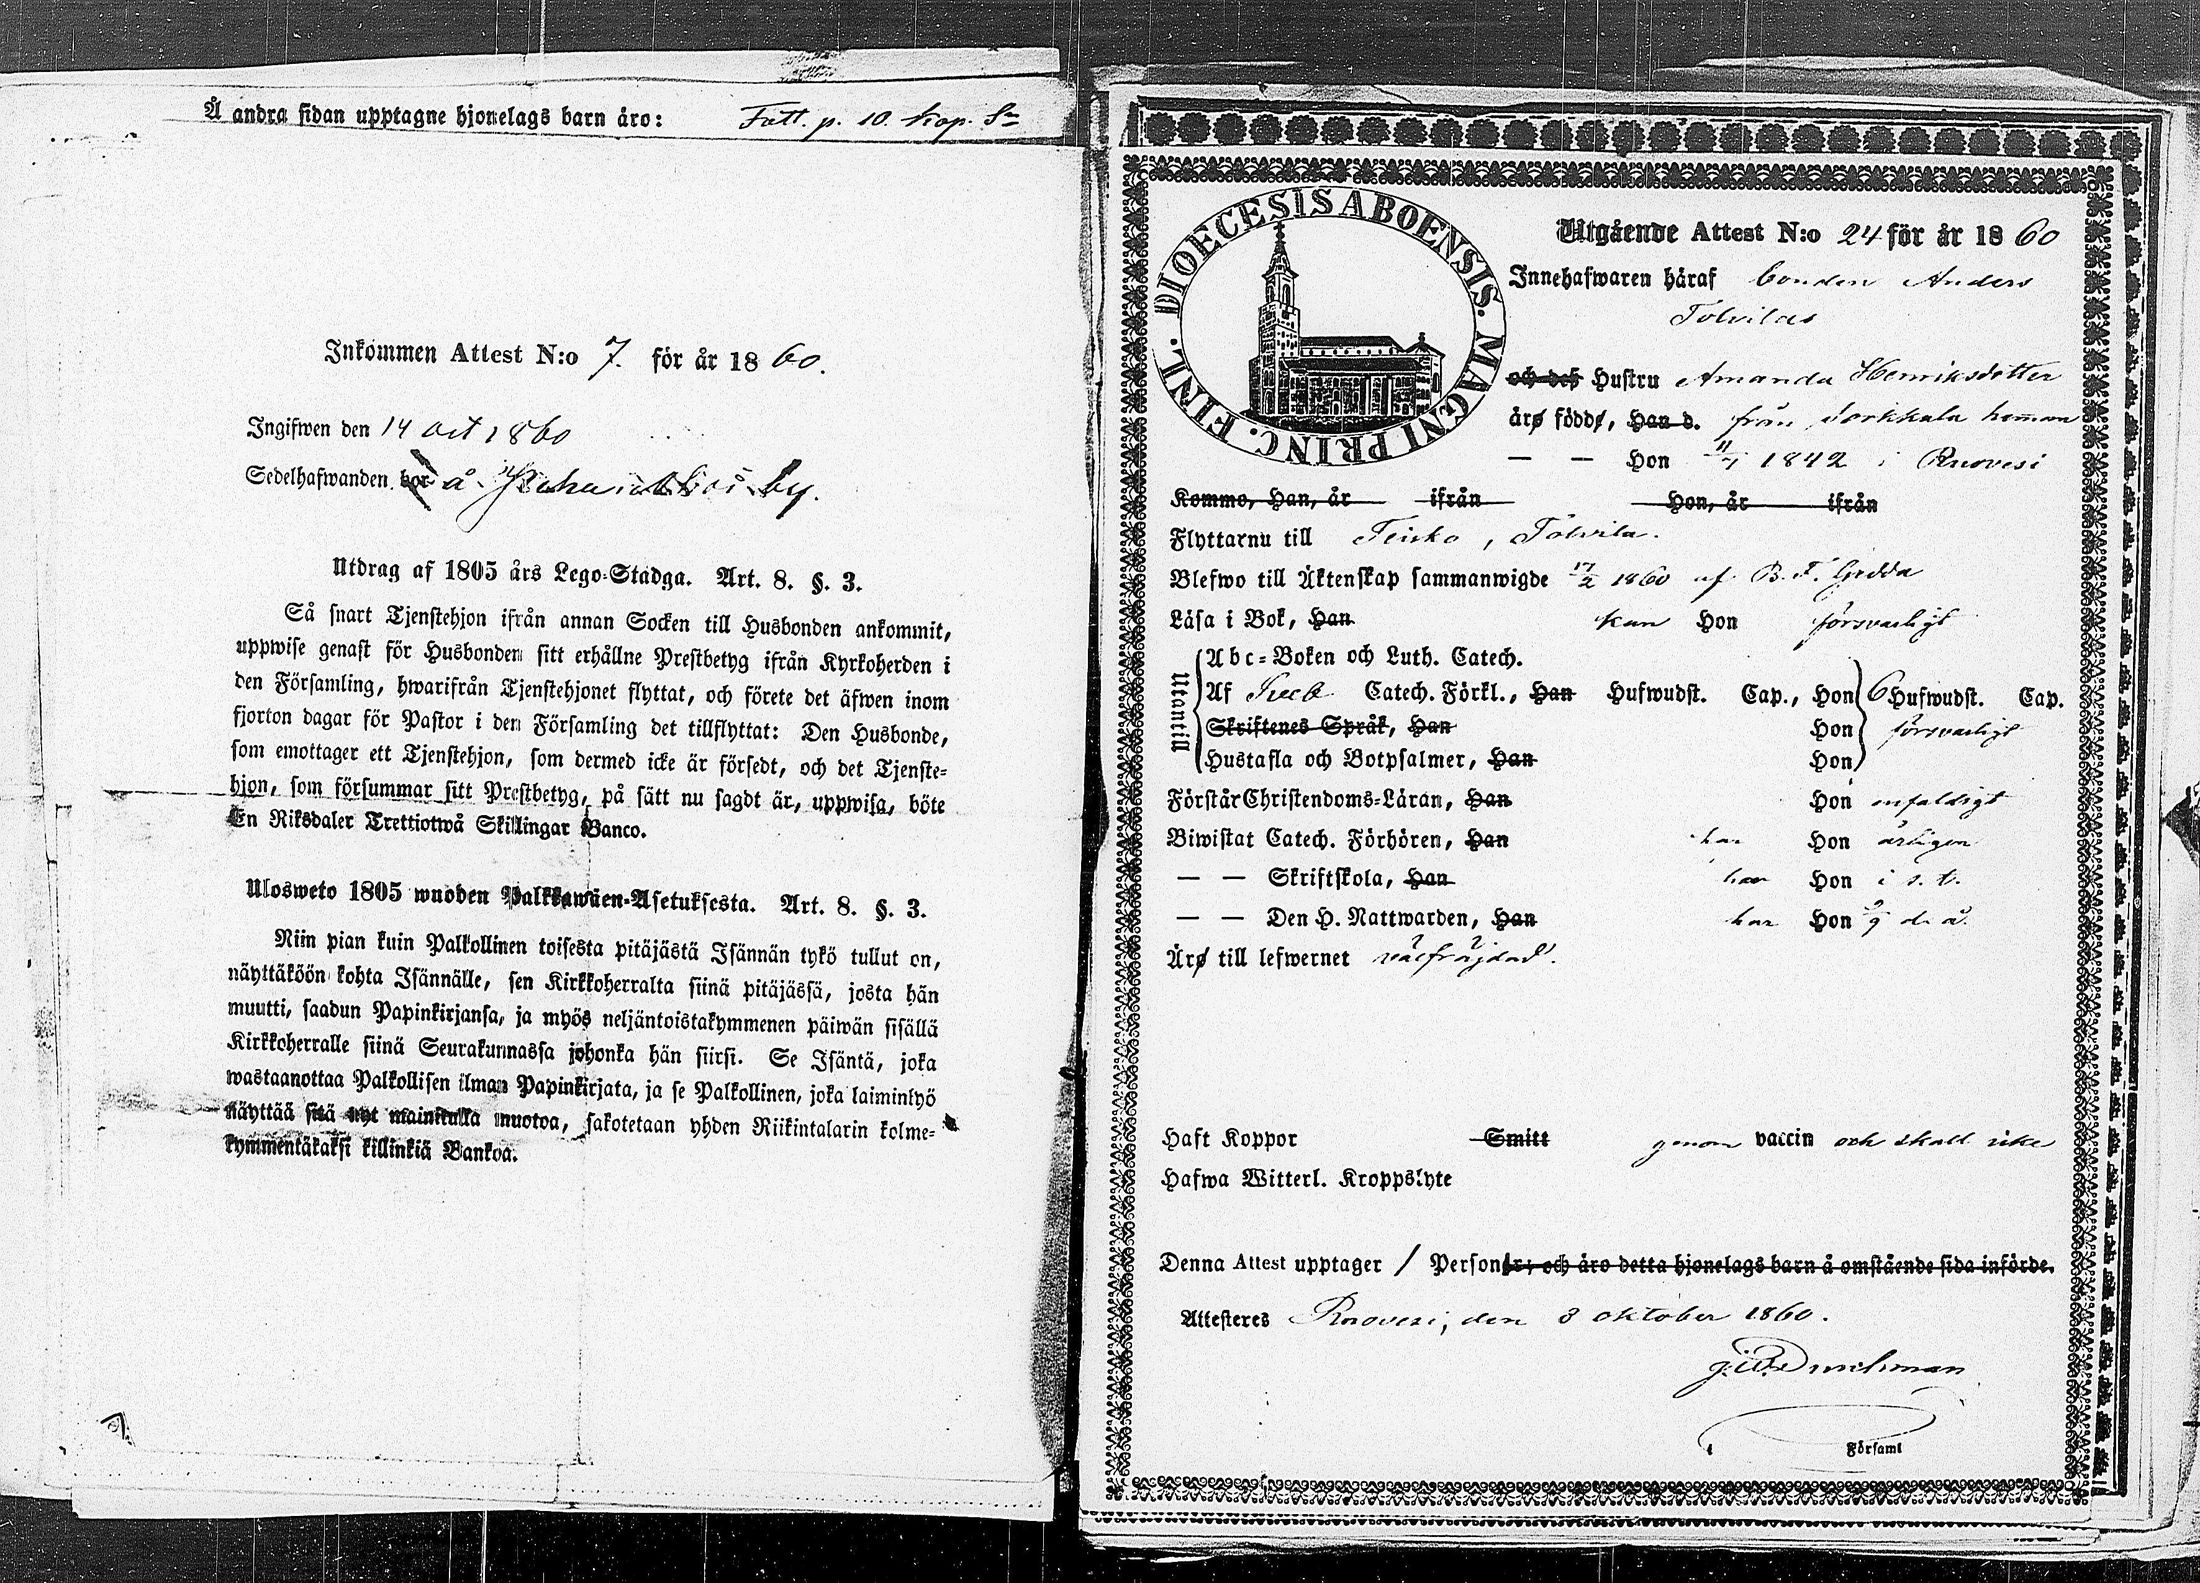 Å andra sidan upptagne hjonelags barn äro: Fått. p. 10. kop. Sr
Inkommen Attest N:o 7. för år 1860.
Ingifwen den 14 oct 1860
Sedelhafwanden bor å by.
Utdrag af 1805 års Lego-Stadga. Art. 8. §. 3.
Så snart Tjenstehjon ifrån annan Socken till Husbonden ankommit,
uppwise genast för Husbonden sitt erhållne Prestbetyg ifrån Kyrkoherden i
den Församling, hwarifrån Tjenstehjonet flyttat, och förete det äfwen inom
fjorton dagar för Pastor i den Församling det tillflyttat: Den Husbonde,
som emottager ett Tjenstehjon, som dermed icke är försedt, och det Tjenste-
hjon, som försummar sitt Prestbetyg, på sätt nu sagdt är, uppwisa, böte
En Riksdaler Trettiotwå Skillingar Banco.
Ulosweto 1805 wuoden Palkkawäen-Asetuksesta. Art. 8. §. 3.
Niin pian kuin Palkollinen toisesta pitäjästä Isännän tykö tullut on,
näyttäköön kohta Isännälle, sen Kirkkoherralta siinä pitäjässä, josta hän
muutti, saadun Papinkirjansa, ja myös neljäntoistakymmenen päiwän sisällä
Kirkkoherralle siinä Seurakunnassa johonka hän siirsi. Se Isäntä, joka
wastaanottaa Palkollisen ilman Papinkirjata, ja se Palkollinen, joka laiminlyö
näyttää sitä nyt mainitulla muotoa, sakotetaan yhden Riikintalarin kolme-
kymmentäkaksi killinkiä Bankoa.
7.
DIOECESIS ABOENSIS. MAGNI PRINC. FINL.
Utgående Attest N:o 24 för år 1860
Innehafwaren häraf bonden Anders
Tölvilas
och deß Hustru Amanda Henriksdotter
äro födde, Han d. från Jorkkala heman
— — Hon 11/7 1842 i Ruovesi
Kommo, Han, år ifrån Hon, år ifrån
Flyttarnu till Teisko, Tölvila.
Blefwo till Äktenskap sammanwigde 17/2 1860 af B. F. Gedda
Läsa i Bok, Han kan Hon försvarligt
Utantill
Abc-Boken och Luth. Catech.
Af Sveb. Catech. Förkl., Han Hufwudst. Cap., Hon 6 Hufwudst. Cap.
Skriftenes Språk, Han Hon försvarligt
Hustafla och Botpsalmer, Han Hon
Förstår Christendoms-Läran, Han Hon enfaldigt
Biwistat Catech. Förhören, Han har Hon årligen
— — Skriftskola, Han har Hon i s. t.
— — Den H. Nattwarden, Han har Hon 2/9 d. å.
Äro till lefwernet välfräjdad.
Haft Koppor Smitt genom vaccin och skall icke
Hafwa Witterl. Kroppslyte
Denna Attest upptager 1 Personer; och äro detta hjonelags barn å omstående sida införde.
Attesteres Ruovesi, den 8 oktober 1860.
Församl